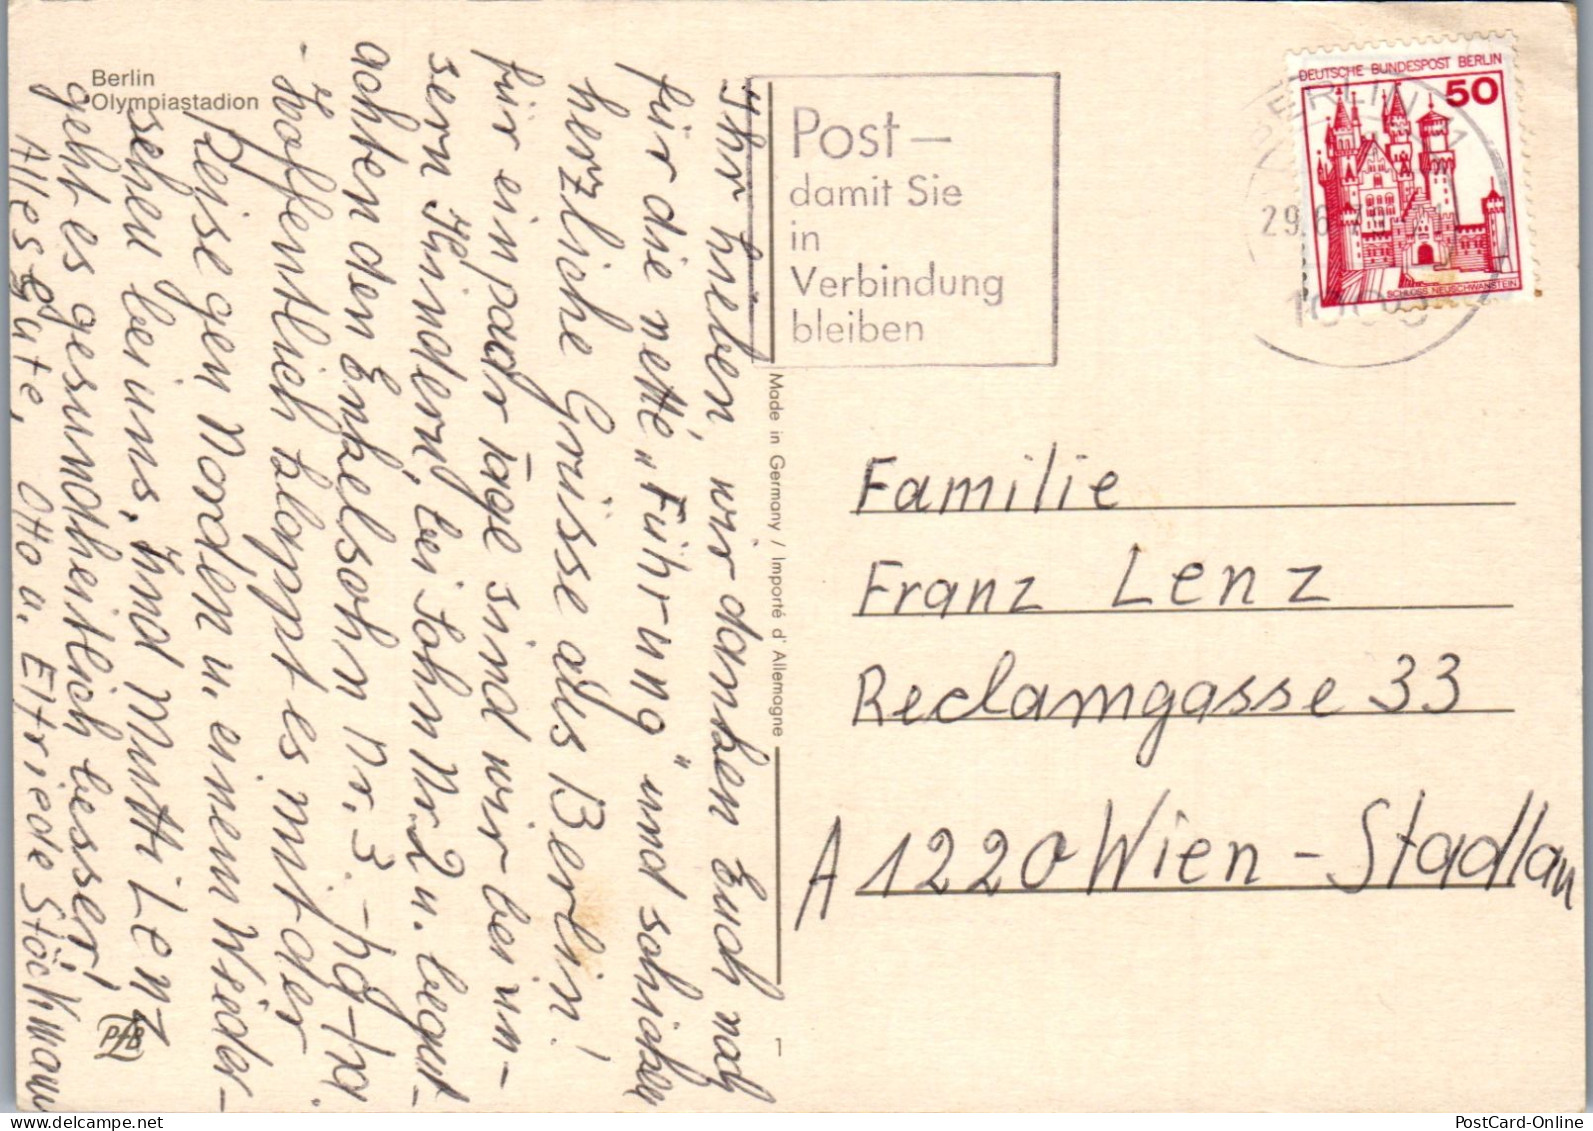 Berlin
Olympiastadion
Ihr Lieben, wir danken Euch noch
für die nette „Führung" und schicken
herzliche Grüsse aus Berlin!
für ein paar Tage sind wir bei un-
sern Kindern, bei Sohn Nr. 2 u. begut-
achten den Enkelsohn Nr. 3.
- Hoffentlich klappt es mit der
Reise gen Norden u. einem Wieder-
sehen bei uns. Und Mutti Lenz
geht es gesundheitlich besser!
Alles Gute, Otto u. Elfriede Stöckmann
Made in Germany / Importé d'Allemagne
1
PfB
Post –
damit Sie
in
Verbindung
bleiben
BERLIN
29.6
1000
DEUTSCHE BUNDESPOST BERLIN
50
SCHLOSS NEUSCHWANSTEIN
Familie
Franz Lenz
Reclamgasse 33
A 1220 Wien - Stadlau
PostCard-Online